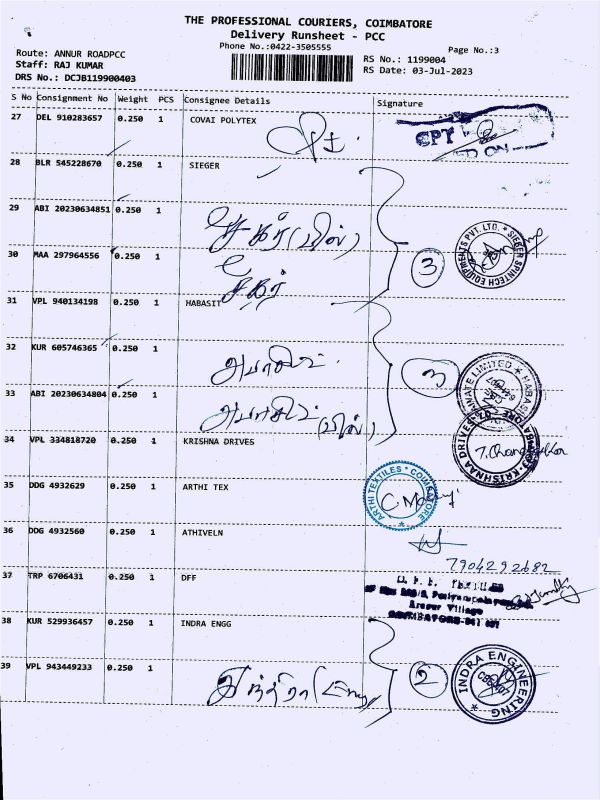 THE PROFESSIONAL COURIERS, COIMBATORE
Delivery Runsheet - PCC
Phone No.:0422-3505555
Page No.:3
Route: ANNUR ROADPCC
Staff: RAJ KUMAR
DRS No.: DCJB119900403
RS No.: 1199004
RS Date: 03-Jul-2023
S No Consignment No Weight PCS Consignee Details Signature
27 DEL 910283657 0.250 1 COVAI POLYTEX
CPT
ED ON
28 BLR 545228670 0.250 1 SIEGER
29 ABI 20230634851 0.250 1
சீகர் (பில்)
SIEGER SPINTECH EQUIPMENTS PVT. LTD.
30 MAA 297964556 0.250 1
3
சீகர்
31 VPL 940134198 0.250 1 HABASIT
32 KUR 605746365 0.250 1
அபாசிட்
3
33 ABI 20230634804 0.250 1
அபாசிட் (பில்)
34 VPL 334818720 0.250 1 KRISHNA DRIVES
35 DDG 4932629 0.250 1 ARTHI TEX
ARTHI TEXTILES COIMBATORE
36 DDG 4932560 0.250 1 ATHIVELN
7904292682
37 TRP 6706431 0.250 1 DFF
Annur Village
38 KUR 529936457 0.250 1 INDRA ENGG
39 VPL 943449233 0.250 1
இந்திரா (Engg)
2
INDRA ENGINEERING